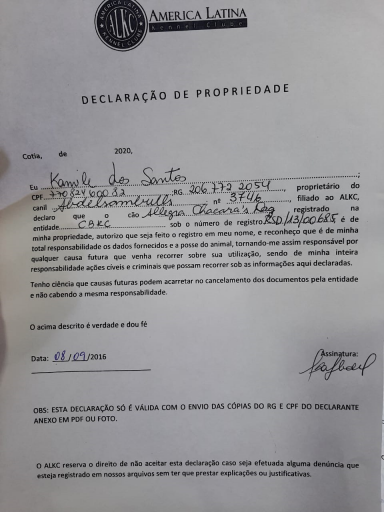 AMERICA LATINA
KENNEL CLUBE
ALKC
AMERICA LATINA
Kennel Clube
DECLARAÇÃO DE PROPRIEDADE
Cotia, de 2020,
Eu Kamila dos Santos
CPF 770824600 82 ;RG 206 772 2054, proprietário do
canil nº 3746, filiado ao ALKC,
declaro que o cão Allegra Chacara's Dog registrado na
entidade CBKC sob o número de registro RSD/13/00685 é de
minha propriedade, autorizo que seja feito o registro em meu nome, e reconheço que é de minha
total responsabilidade os dados fornecidos e a posse do animal, tornando-me assim responsável por
qualquer causa futura que venha recorrer sobre sua utilização, sendo de minha inteira
responsabilidade ações cíveis e criminais que possam recorrer sob as informações aqui declaradas.
Tenho ciência que causas futuras podem acarretar no cancelamento dos documentos pela entidade
e não cabendo a mesma responsabilidade.
O acima descrito é verdade e dou fé
Data: 08/09/2016
Assinatura:
OBS: ESTA DECLARAÇÃO SÓ É VÁLIDA COM O ENVIO DAS CÓPIAS DO RG E CPF DO DECLARANTE
ANEXO EM PDF OU FOTO.
O ALKC reserva o direito de não aceitar esta declaração caso seja efetuada alguma denúncia que
esteja registrado em nossos arquivos sem ter que prestar explicações ou justificativas.